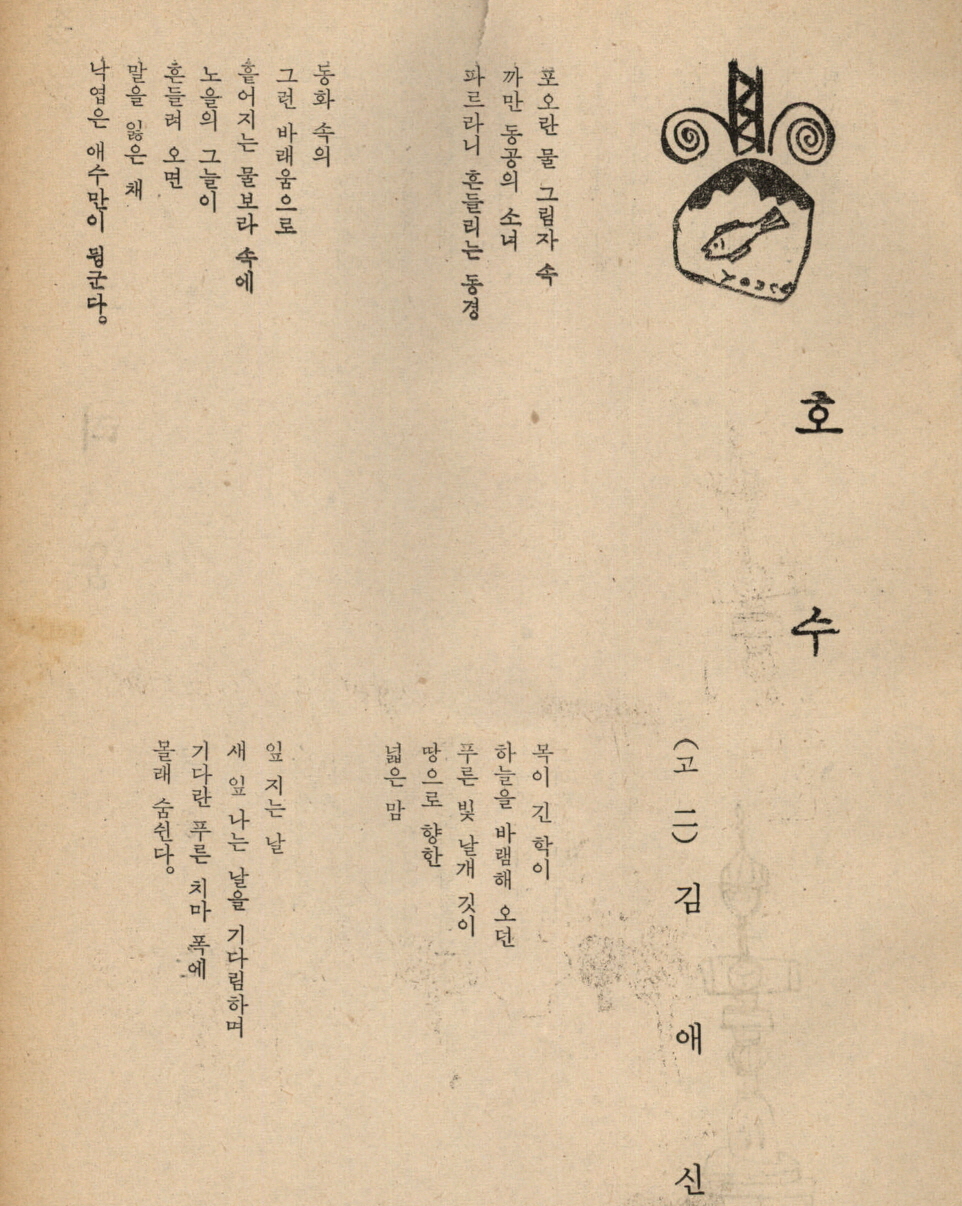 호수
(고 二) 김애신
포오란 물 그림자 속
까만 동공의 소녀
파르라니 흔들리는 동경
동화 속의
그런 바래움으로
흩어지는 물보라 속에
노을의 그늘이
흔들려 오면
말을 잃은 채
낙엽은 애수만이 뒹군다。
목이 긴 학이
하늘을 바램해 오던
푸른 빛 날개 깃이
땅으로 향한
넓은 맘
잎 지는 날
새 잎 나는 날을 기다림하며
기다란 푸른 치마 폭에
몰래 숨쉰다。